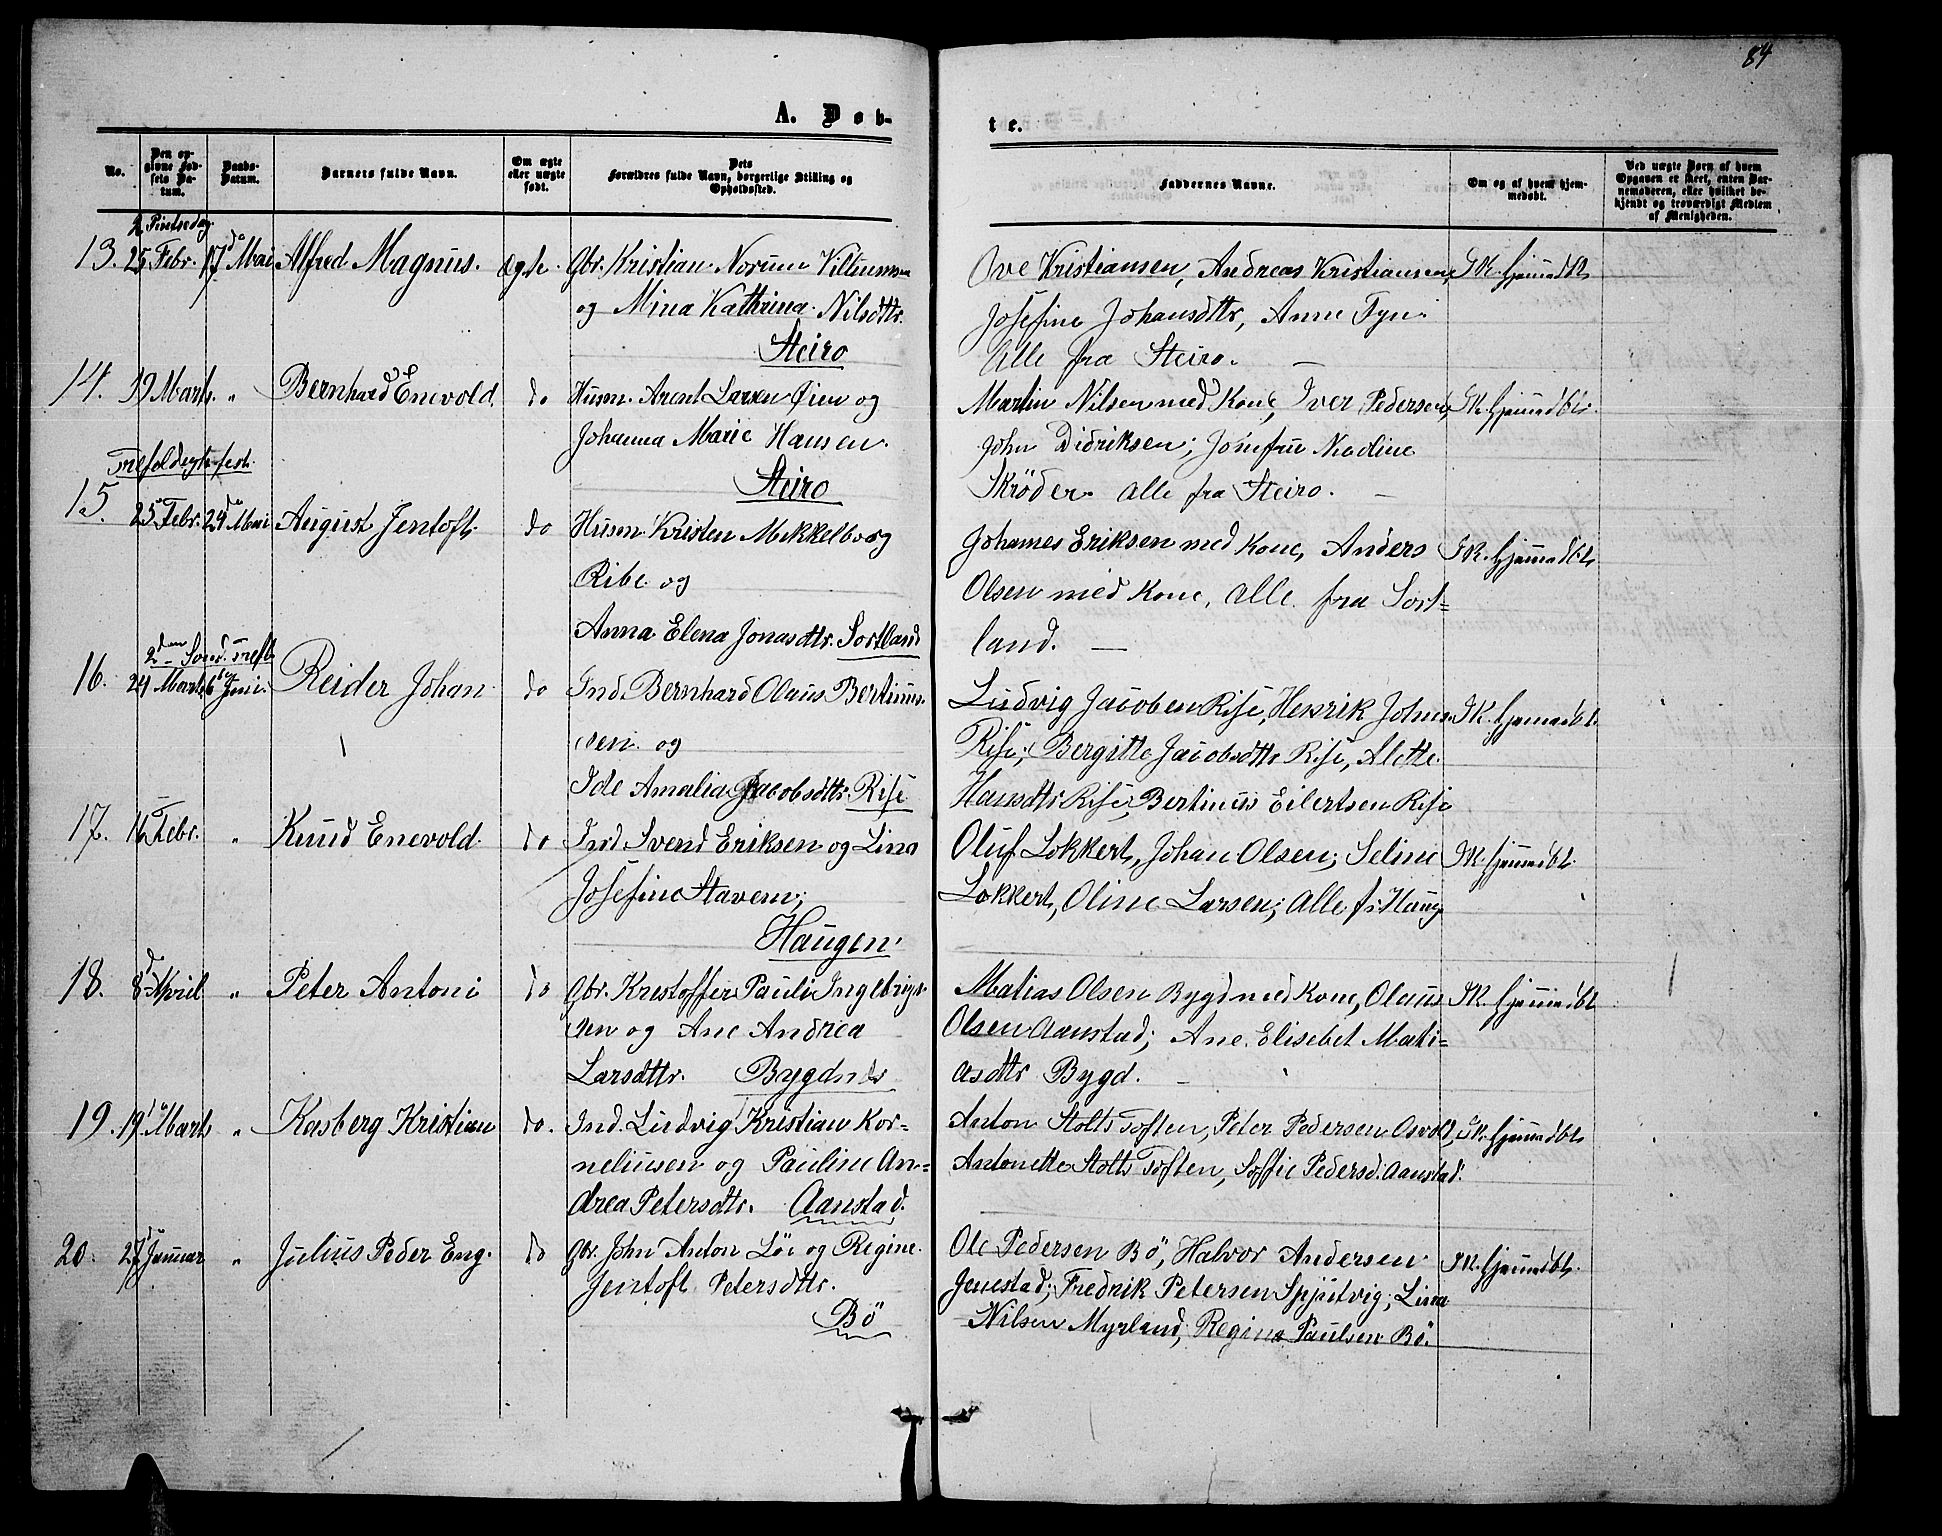 84
A. Døb-
te.
No.
Den opgivne Fødsels Datum.
Daabs-Datum.
Barnets fulde Navn.
Om ægte eller uægte født.
Dets Forældres fulde Navn, borgerlige Stilling og Opholdssted.
Faddernes Navne.
Om og af hvem hjemmedøbt.
Ved uægte Børn af hvem Opgaven er skeet, enten Barnemoderen, eller hvilket bekjendt og troværdigt Medlem af Menigheden.
2 Pintsedag
13. 25 Febr. 17de Mai Alfred Magnus. Ægte. Gbr. Kristian Norum
og Mina Kathrina Nilsdttr.
Steiro
Ove Kristiansen, Andreas Kristiansen,
Josefine Johansdttr, Anne Fyn.
Alle fra Steiro. —
IK. hjemmedbt.
14. 19 Marts. " Bernhard Enevold. do Husm. Arent Larsen Øien og
Johanna Marie Hansen.
Steiro
Martin Nilsen med Kone, Iver Pedersen,
John Didriksen; Jomfru Nicoline
Skröder. Alle fra Steiro. —
IK. hjemmedbt.
Trefoldighfest.
15. 25 Febr. 24de Mai August Jentoft do Husm. Kristen Mekkelborg
Ribe og
Anna Elena Jonasdttr. Sortland
Johannes Eriksen med Kone, Anders
Olsen med Kone, Alle fra Sort=
land. —
IK. hjemmedbt.
2den Sønd. Trefl.
16. 24 Marts 6 Juni. Reider Johan do Ind. Bernhard Olaus Bertinus-
sen og
Ide Amalia Jacobsdttr. Rise
Ludvig Jacobsen Rise, Henrik Johns.
Rise; Bergitte Jacobsdttr Rise, Alette
Hansdtr Rise, Bertinus Eilertsen Rise
IK. hjemmedbt.
17. 16 Febr. " Knud Enevold. do Ind. Svend Eriksen og Lina
Josefine Stavem;
Haugen.
Oluf Lokkert, Johan Olsen; Seline
Lokkert, Oline Larsen; Alle f. Haug
IK. hjemmedbt.
18. 8d April " Peter Antoni do Gbr. Kristoffer Pauli Ingebrigt-
sen og Ane Andrea
Larsdttr. Bygdnes
Matias Olsen Bygd med Kone, Olaus
Olsen Aanstad; Ane Elisebet Mati=
asdttr Bygd. —
IK. hjemmedbt
19. 19 Marts " Kasberg Kristian do. Ind. Ludvig Kristian Kor=
neliusen og Pauline An=
drea Petersdtr. Aanstad.
Anton Stolts Toften, Peter Pedersen Osvold,
Antonette Stolts Toften, Soffie Pedersd. Aanstad.
IK. hjemmedbt.
20. 27 Januar " Julius Peder Eng. do Gbr. John Anton Löi og Regine
Jentoft Petersdttr.
Bö
Ole Pedersen Bö, Halvor Andersen
Jennestad; Fredrik Petersen Spjutvig; Lina
Nilsen Myrland; Regina Paulsen Bö.
IK. hjemmedbt.